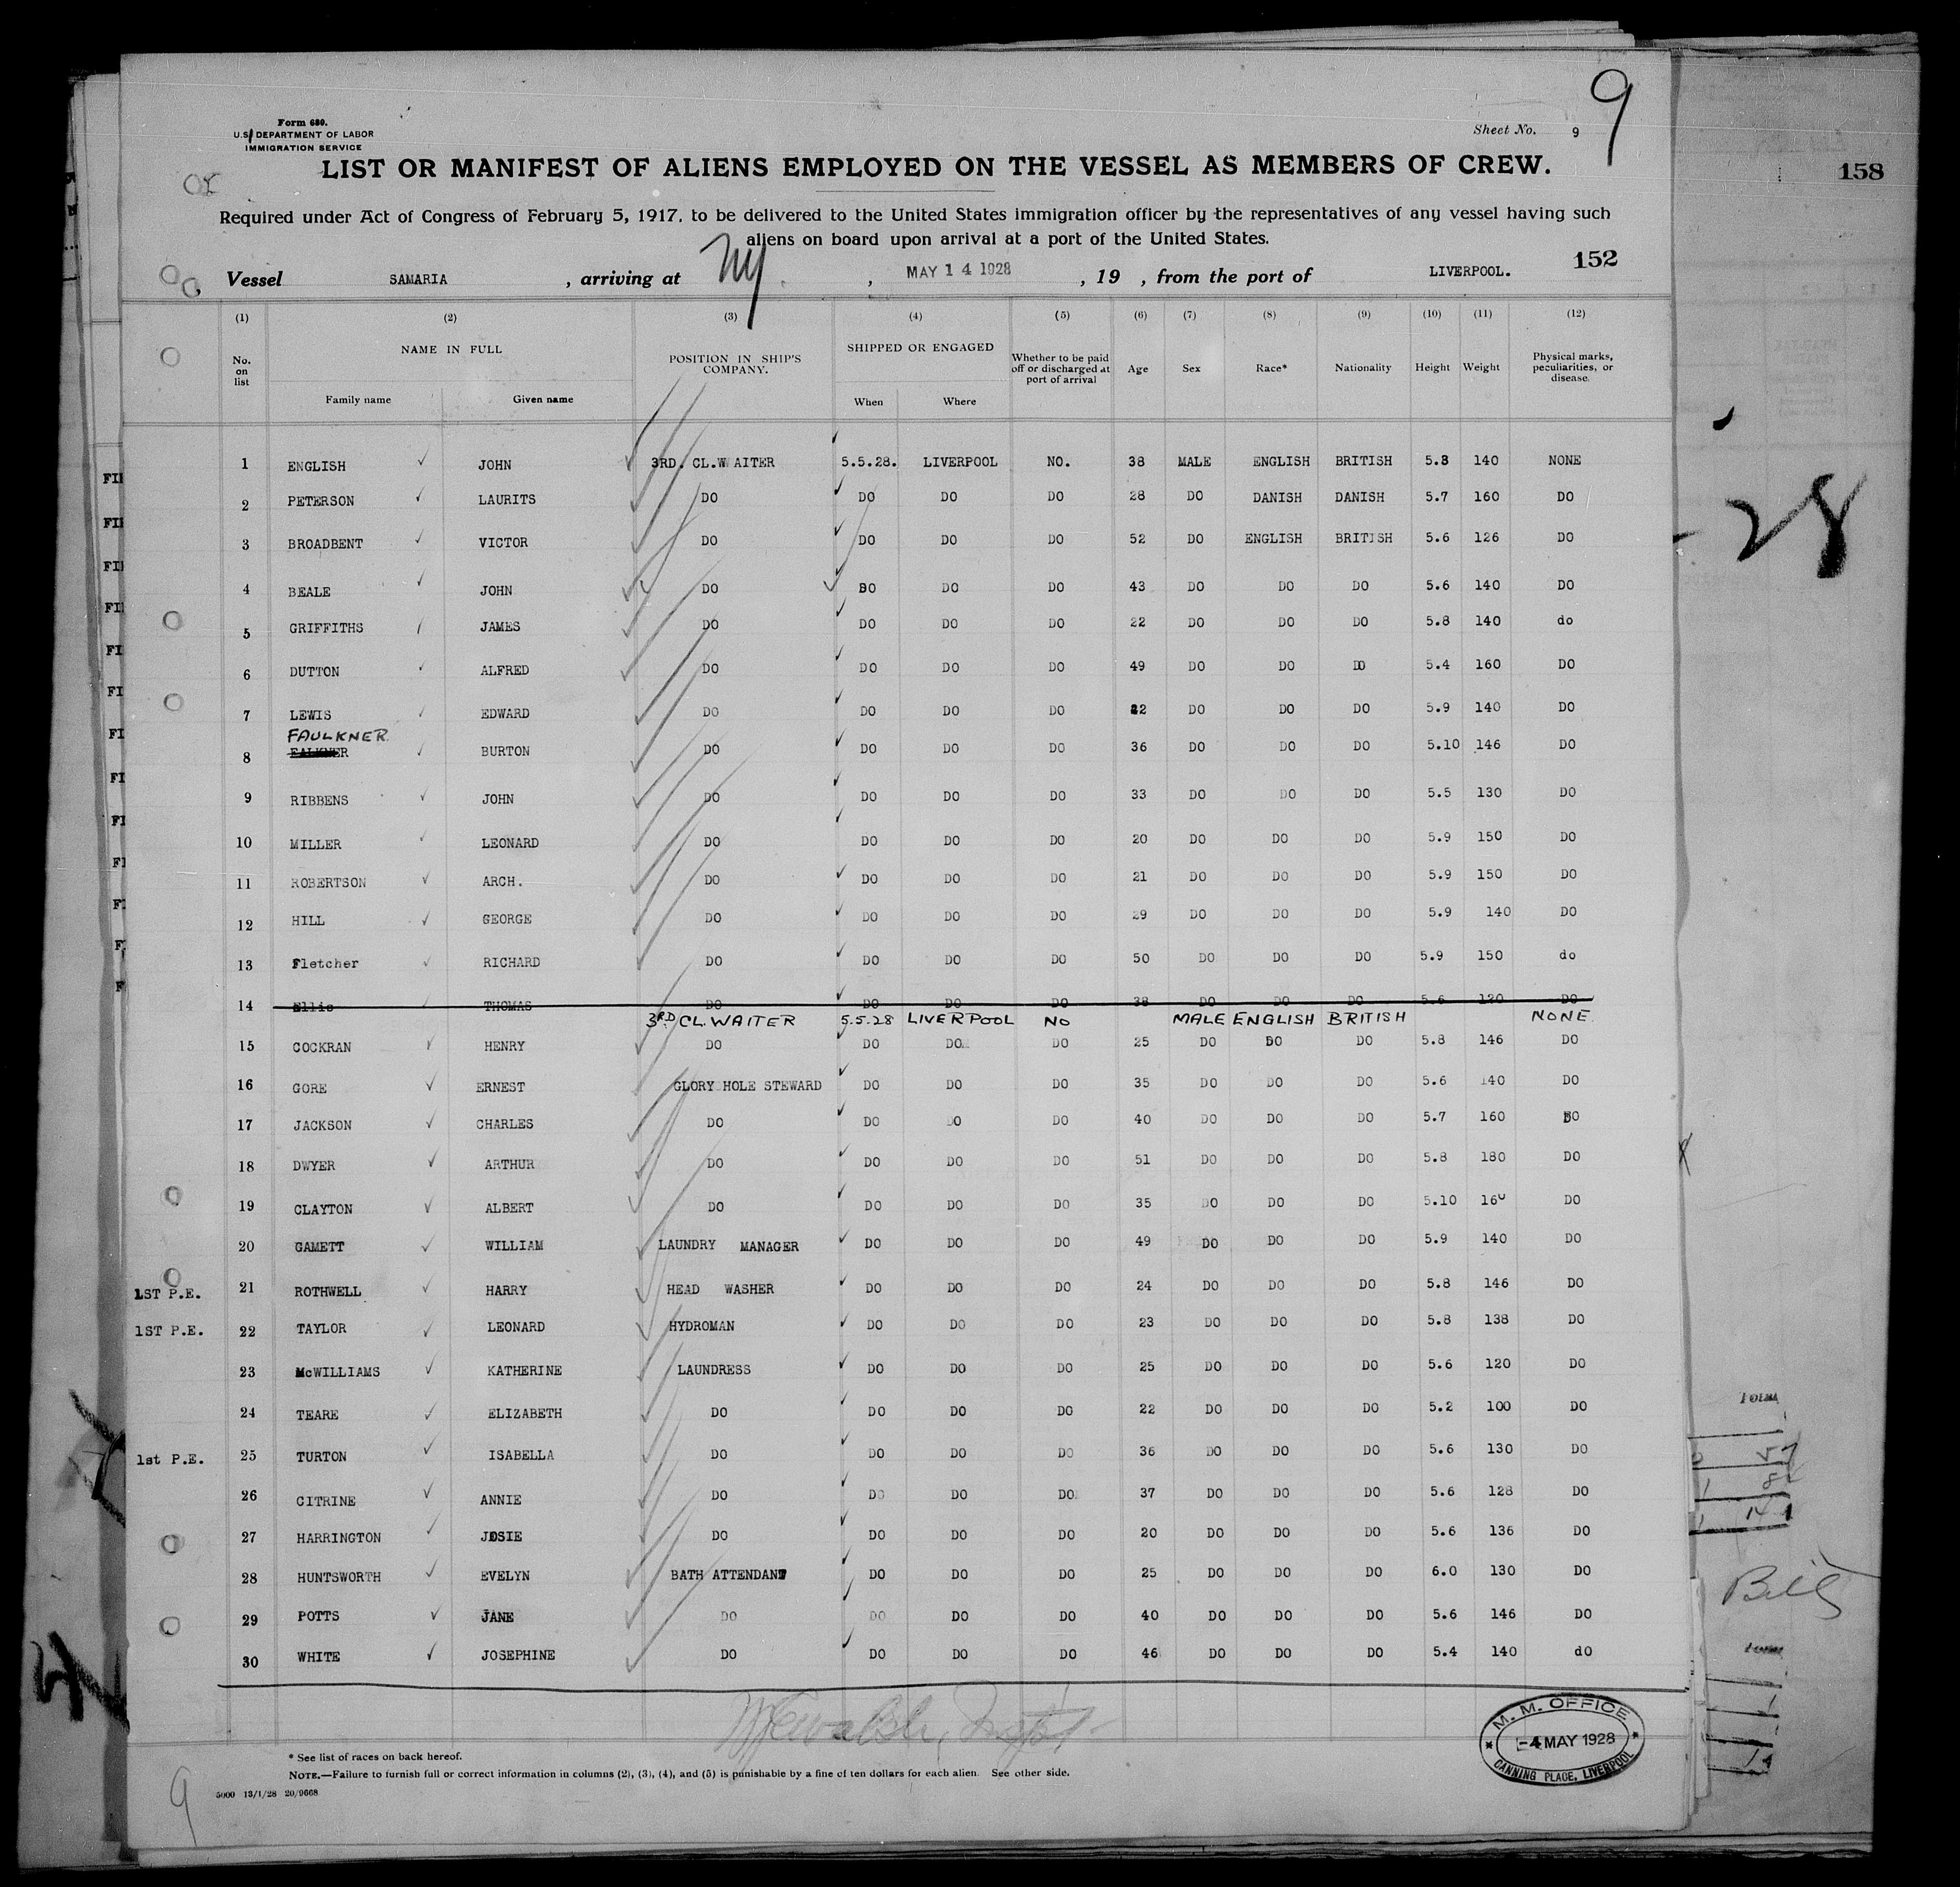 Form 680.
U.S. DEPARTMENT OF LABOR
IMMIGRATION SERVICE
Sheet No. 9
9
LIST OR MANIFEST OF ALIENS EMPLOYED ON THE VESSEL AS MEMBERS OF CREW.
158
Required under Act of Congress of February 5, 1917, to be delivered to the United States immigration officer by the representatives of any vessel having such
aliens on board upon arrival at a port of the United States.
152
Vessel SAMARIA , arriving at NY , MAY 14 1928 , 19 , from the port of LIVERPOOL.
(1) (2) (3) (4) (5) (6) (7) (8) (9) (10) (11) (12)
No. on list NAME IN FULL Family name Given name POSITION IN SHIP'S COMPANY. SHIPPED OR ENGAGED When Where Whether to be paid off or discharged at port of arrival Age Sex Race* Nationality Height Weight Physical marks, peculiarities, or disease.
1 ENGLISH JOHN 3RD. CL.WAITER 5.5.28. LIVERPOOL NO. 38 MALE ENGLISH BRITISH 5.8 140 NONE
2 PETERSON LAURITS DO DO DO DO 28 DO DANISH DANISH 5.7 160 DO
28
3 BROADBENT VICTOR DO DO DO DO 52 DO ENGLISH BRITISH 5.6 126 DO
4 BEALE JOHN DO DO DO DO 43 DO DO DO 5.6 140 DO
5 GRIFFITHS JAMES DO DO DO DO 22 DO DO DO 5.8 140 do
6 DUTTON ALFRED DO DO DO DO 49 DO DO DO 5.4 160 DO
7 LEWIS EDWARD DO DO DO DO DO DO DO 5.9 140 DO
FAULKNER
8 FALKNER BURTON DO DO DO DO 36 DO DO DO 5.10 146 DO
9 RIBBENS JOHN DO DO DO DO 33 DO DO DO 5.5 130 DO
10 MILLER LEONARD DO DO DO DO 20 DO DO DO 5.9 150 DO
11 ROBERTSON ARCH. DO DO DO DO 21 DO DO DO 5.9 150 DO
12 HILL GEORGE DO DO DO DO 29 DO DO DO 5.9 140 DO
13 Fletcher RICHARD DO DO DO DO 50 DO DO DO 5.9 150 do
14 Ellis THOMAS DO DO DO DO 38 DO DO DO 5.6 120 DO
3RD CL.WAITER 5.5.28 LIVERPOOL NO MALE ENGLISH BRITISH NONE.
15 COCKRAN HENRY DO DO DO DO 25 DO DO DO 5.8 146 DO
16 GORE ERNEST GLORY HOLE STEWARD DO DO DO 35 DO DO DO 5.6 140 DO
17 JACKSON CHARLES DO DO DO DO 40 DO DO DO 5.7 160 DO
18 DWYER ARTHUR DO DO DO DO 51 DO DO DO 5.8 180 DO
19 CLAYTON ALBERT DO DO DO DO 35 DO DO DO 5.10 160 DO
20 GAMETT WILLIAM LAUNDRY MANAGER DO DO DO 49 DO DO DO 5.9 140 DO
1ST P.E. 21 ROTHWELL HARRY HEAD WASHER DO DO DO 24 DO DO DO 5.8 146 DO
1ST P.E. 22 TAYLOR LEONARD HYDROMAN DO DO DO 23 DO DO DO 5.8 138 DO
23 McWILLIAMS KATHERINE LAUNDRESS DO DO DO 25 DO DO DO 5.6 120 DO
24 TEARE ELIZABETH DO DO DO DO 22 DO DO DO 5.2 100 DO
1st P.E. 25 TURTON ISABELLA DO DO DO DO 36 DO DO DO 5.6 130 DO
26 CITRINE ANNIE DO DO DO DO 37 DO DO DO 5.6 128 DO
27 HARRINGTON JOSIE DO DO DO DO 20 DO DO DO 5.6 136 DO
28 HUNTSWORTH EVELYN BATH ATTENDANT DO DO DO 25 DO DO DO 6.0 130 DO
29 POTTS JANE DO DO DO DO 40 DO DO DO 5.6 146 DO
30 WHITE JOSEPHINE DO DO DO DO 46 DO DO DO 5.4 140 dO
M. M. OFFICE
-4 MAY 1928
CANNING PLACE, LIVERPOOL
* See list of races on back hereof.
NOTE.—Failure to furnish full or correct information in columns (2), (3), (4), and (5) is punishable by a fine of ten dollars for each alien. See other side.
5000 13/1/28 20/9668
9